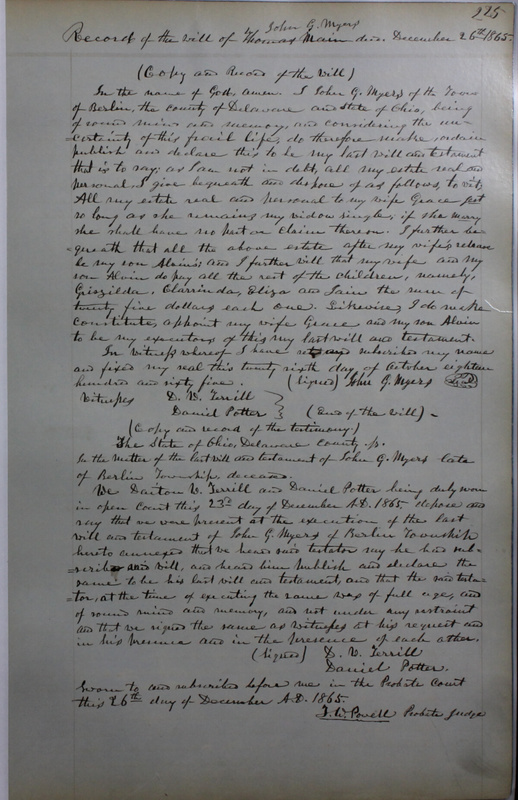 225
John G. Myers
Record of the will of Thomas Main decd. December 26th 1865.
(Copy and Record of the Will)
In the name of God, amen. I John G. Myers of the Town
of Berlin, the county of Delaware and State of Ohio, being
of sound mind and memory, and considering the un-
=certainty of this frail life, do therefore make, ordain
publish and declare this to be my last will and testament
that is to say: as I am not in debt, all my estate real and
personal I give bequeath and dispose of as follows, to wit;
All my estate real and personal to my wife Grace
so long as she remains my widow single; if she marry
she shall have no part or claim thereon. I further be-
=queath that all the above estate after my wife's release
be my son Alvin's and I further will that my wife and my
son Alvin do pay all the rest of the children, namely:
Griszilda, Clarrinda, Eliza and Jain the sum of
twenty five dollars each one. Likewise, I do make
constitute, appoint my wife Grace and my son Alvin
to be my executors of this my last will and testament.
In witness whereof I have subscribed my name
and fixed my seal this twenty sixth day of October eighteen
hundred and sixty five. (Signed) John G. Myers Seal
Witnesses D. V. Terrill
Daniel Potter } (End of the Will) -
(Copy and record of the testimony.)
The State of Ohio, Delaware County, ss.
In the matter of the last will and testament of John G. Myers late
of Berlin Township, deceased.
We Daiton V. Terrill and Daniel Potter being duly sworn
in open Court this 23rd day of December A.D. 1865, depose and
say that we were present at the execution of the last
will and testament of John G. Myers of Berlin Township
hereto annexed that we heard said testator say he had sub-
=scribed said will, and heard him publish and declare the
same to be his last will and testament, and that the said testa-
=tor, at the time of executing the same was of full age, and
of sound mind and memory, and not under any restraint
and that we signed the same as witnesses at his request and
in his presence and in the presence of each other.
(Signed) D. V. Terrill
Daniel Potter.
Sworn to and subscribed before me in the Probate Court
this 26th day of December A.D. 1865.
T. W. Powell Probate Judge